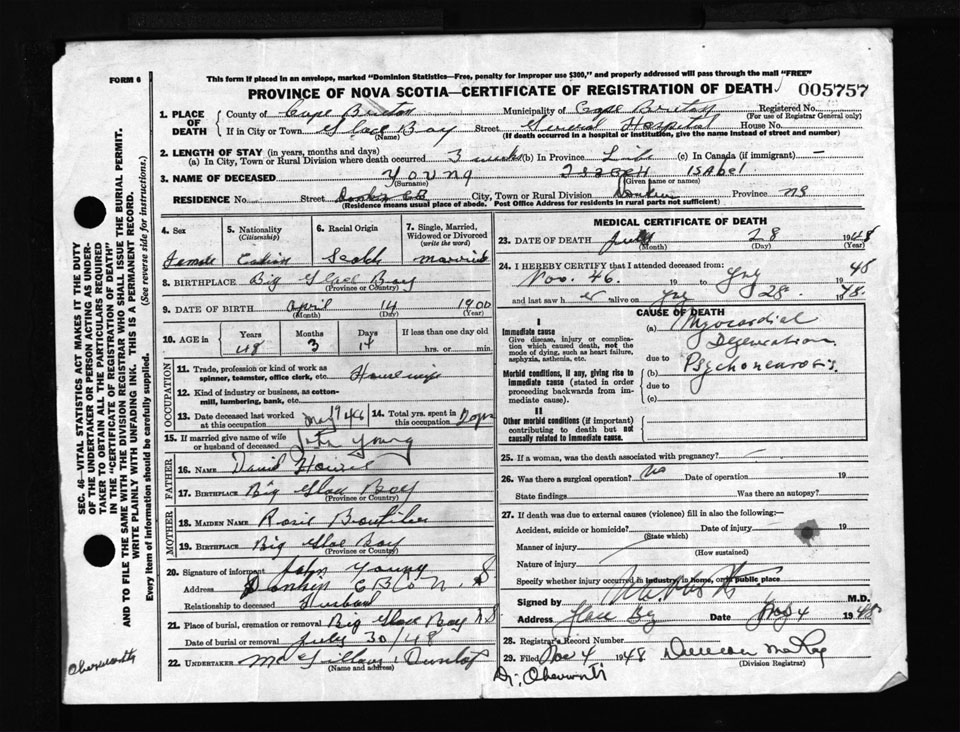 FORM 6
This form if placed in an envelope, marked "Dominion Statistics—Free, penalty for improper use $300," and properly addressed will pass through the mail "FREE"
PROVINCE OF NOVA SCOTIA—CERTIFICATE OF REGISTRATION OF DEATH 005757
1. PLACE OF DEATH
County of Cape Breton Municipality of Cape Breton Registered No.
(For use of Registrar General only)
If in City or Town Glace Bay Street General Hospital House No.
(Name) (If death occurred in a hospital or institution, give the name instead of street and number)
2. LENGTH OF STAY (in years, months and days)
(a) In City, Town or Rural Division where death occurred 3 weeks (b) In Province Life (c) In Canada (if immigrant) —
3. NAME OF DECEASED Young Isabel
(Surname) (Given name or names)
RESIDENCE No. Street Donkin C B City, Town or Rural Division Donkin Province NS
(Residence means usual place of abode. Post Office Address for residents in rural parts not sufficient)
4. Sex 5. Nationality (Citizenship) 6. Racial Origin 7. Single, Married, Widowed or Divorced (write the word)
Female Scotch married
8. BIRTHPLACE Big Glace Bay
(Province or Country)
9. DATE OF BIRTH April 14 1900
(Month) (Day) (Year)
10. AGE in Years Months Days If less than one day old
48 3 14 hrs. or min.
OCCUPATION
11. Trade, profession or kind of work as spinner, teamster, office clerk, etc. Housewife
12. Kind of industry or business, as cotton-mill, lumbering, bank, etc.
13. Date deceased last worked at this occupation May 1946 14. Total yrs. spent in this occupation
15. If married give name of wife or husband of deceased John Young
FATHER
16. NAME David
17. BIRTHPLACE Big Glace Bay
(Province or Country)
MOTHER
18. MAIDEN NAME
19. BIRTHPLACE Big Glace Bay
(Province or Country)
20. Signature of informant John Young
Address Donkin C B N.S
Relationship to deceased Husband
21. Place of burial, cremation or removal Big Glace Bay N.S
Date of burial or removal July 30/48
22. UNDERTAKER McGillvary Dunlop
(Name and address)
MEDICAL CERTIFICATE OF DEATH
23. DATE OF DEATH July 28 1948
(Month) (Day) (Year)
24. I HEREBY CERTIFY that I attended deceased from:
Nov. 46. 19 to 48
and last saw h er alive on 28. 1948.
CAUSE OF DEATH
I
Immediate cause
Give disease, injury or complication which caused death, not the mode of dying, such as heart failure, asphyxia, asthenia, etc.
(a) Myocardial Degeneration
due to Psychoneurosis
Morbid conditions, if any, giving rise to immediate cause (stated in order proceeding backwards from immediate cause).
(b)
due to
(c)
II
Other morbid conditions (if important) contributing to death but not causally related to immediate cause.
25. If a woman, was the death associated with pregnancy?
26. Was there a surgical operation? No Date of operation 19
State findings Was there an autopsy?
27. If death was due to external causes (violence) fill in also the following:—
Accident, suicide or homicide? Date of injury 19
(State which)
Manner of injury
(How sustained)
Nature of injury
Specify whether injury occurred in industry, in home, or in public place
Signed by M.D.
Address Glace Bay Date 4 1948
28. Registrar's Record Number
29. Filed 4 1948 Duncan
(Division Registrar)
SEC. 46—VITAL STATISTICS ACT MAKES IT THE DUTY
OF THE UNDERTAKER OR PERSON ACTING AS UNDER-
TAKER TO OBTAIN ALL THE PARTICULARS REQUIRED
IN THE "CERTIFICATE OF REGISTRATION OF DEATH"
AND TO FILE THE SAME WITH THE DIVISION REGISTRAR WHO SHALL ISSUE THE BURIAL PERMIT.
WRITE PLAINLY WITH UNFADING INK. THIS IS A PERMANENT RECORD.
Every item of information should be carefully supplied. (See reverse side for instructions.)